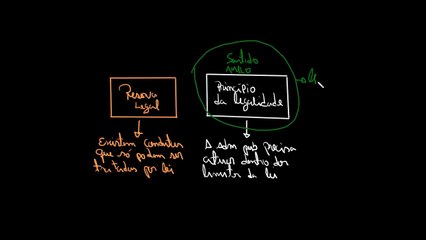 Sentido
AMPLO
Reserva
Legal
Princípio
da legalidade
Existem condutas
que só podem ser
tratadas por lei
A adm pub precisa
dentro dos
limites da lei